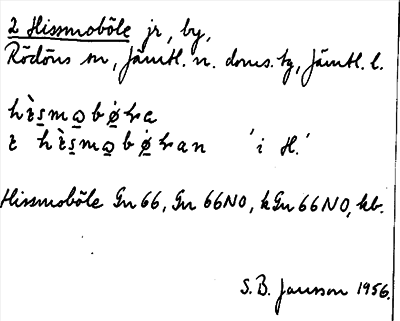 2 Hissmoböle jr, by,
Rödöns sn, Jämtl. n. doms. tg, Jämtl. l.
'i H.'
Hissmoböle Gn 66, Gn 66 NO, kGn 66 NO, kb.
S. B. Jansson 1956.